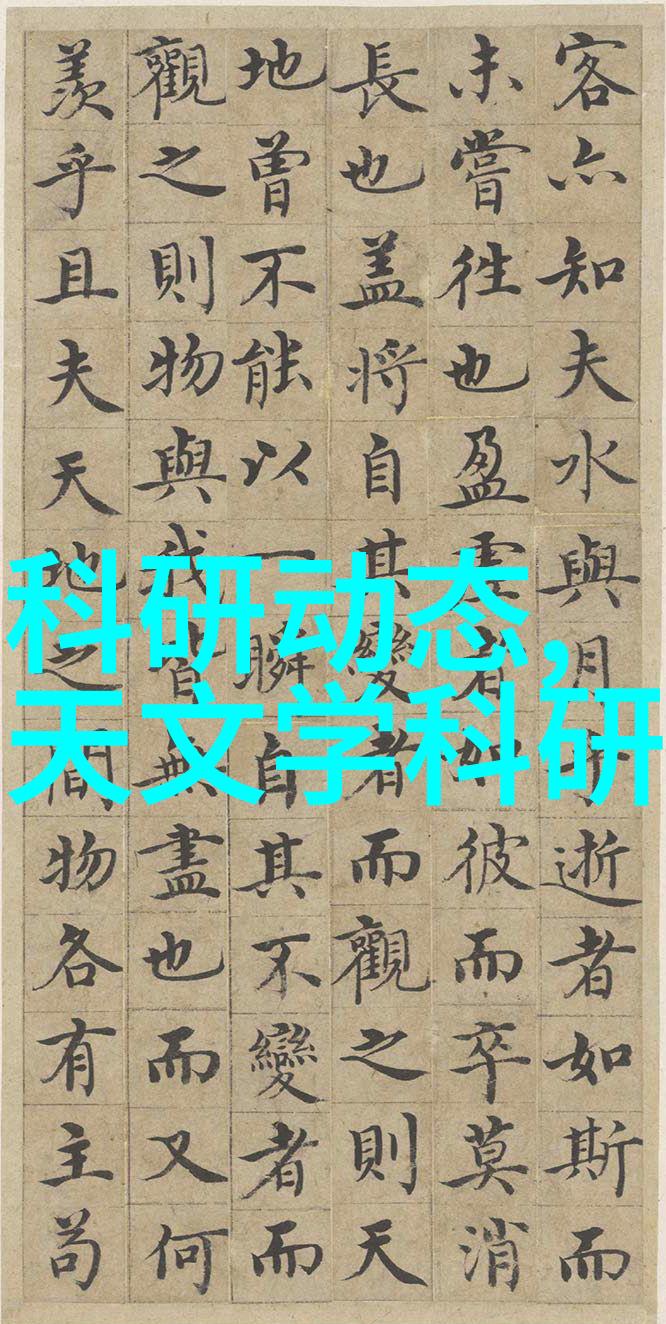 客亦知夫水與月乎逝者如斯而
未嘗往也盈虛者如彼而卒莫消
長也盖將自其變者而觀之則天
地曾不能以一瞬自其不變者而
觀之則物與我皆無盡也而又何
羨乎且夫天地之間物各有主苟
科研动态,
天文学科研